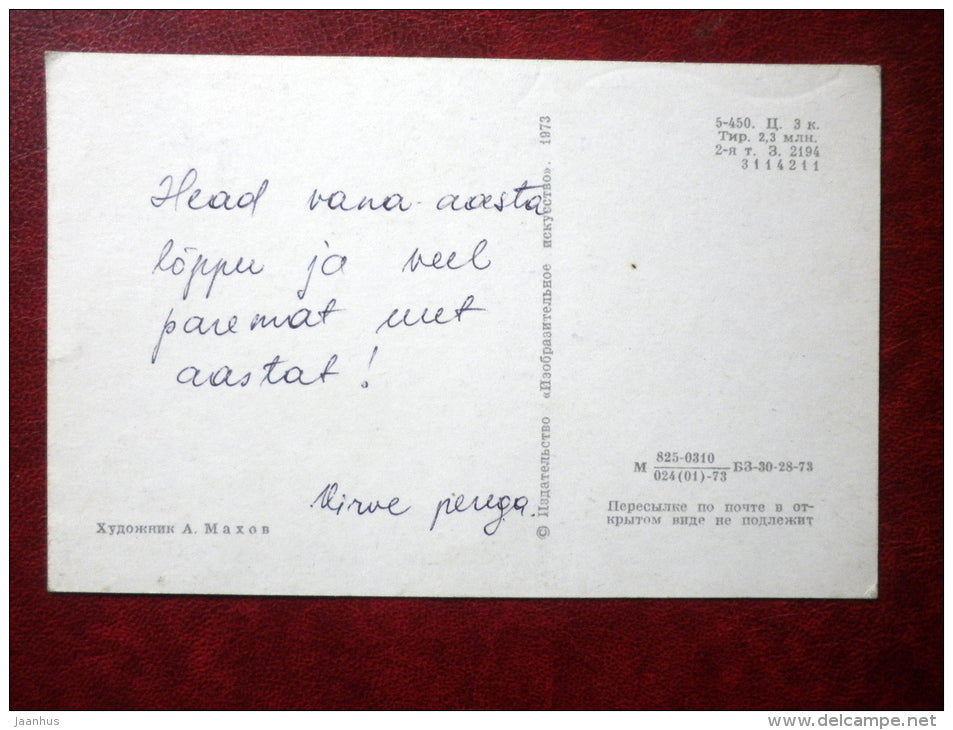 Head vana-aasta
lõppu ja veel
paremat uut
aastat!
Virve perega.
Художник А. Махов
© Издательство «Изобразительное искусство». 1973
5-450. Ц. 3 к.
Тир. 2,3 млн.
2-я т. З. 2194
3114211
М 825-0310
024(01)-73 БЗ-30-28-73
Пересылке по почте в от-
крытом виде не подлежит
jaanhus
www.delcampe.net